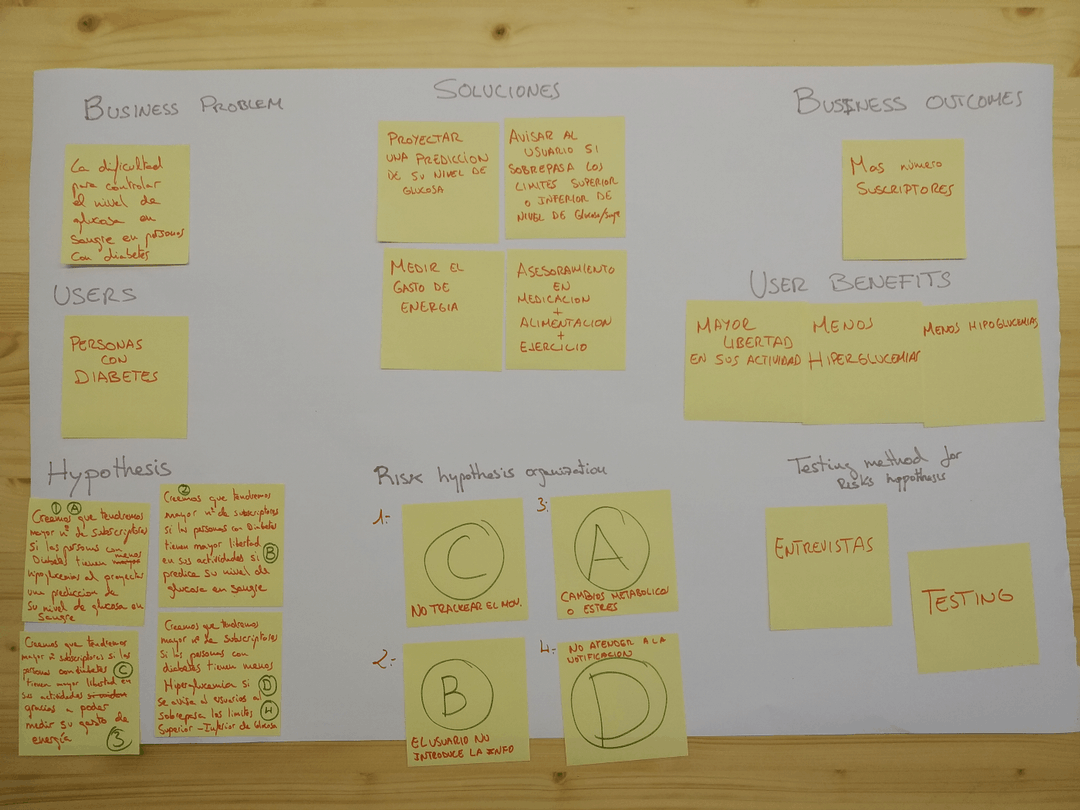 BUSINESS PROBLEM
La dificultad
para controlar
el nivel de
glucosa en
sangre en personas
con diabetes
USERS
PERSONAS
CON
DIABETES
SOLUCIONES
PROYECTAR
UNA PREDICCION
DE SU NIVEL DE
GLUCOSA
AVISAR AL
USUARIO SI
SOBREPASA LOS
LIMITES SUPERIOR
O INFERIOR DE
NIVEL DE Glucosa/
MEDIR EL
GASTO DE
ENERGIA
ASESORAMIENTO
EN
MEDICACION
+
ALIMENTACION
+
EJERCICIO
BUSINESS OUTCOMES
Mas número
SUSCRIPTORES
USER BENEFITS
MAYOR
LIBERTAD
EN SUS ACTIVIDAD
MENOS
HIPERGLUCEMIAS
MENOS HIPOGLUCEMIAS
Hypothesis
1 A
Creemos que tendremos
mayor nº de subscriptores
si las personas con
Diabetes tienen menos
hipoglucemias al proyectar
una prediccion de
su nivel de glucosa en
Sangre
2
Creemos que tendremos
mayor nº de subscriptores
si las personas con Diabetes
tienen mayor libertad
en sus actividades si B
predice su nivel de
glucosa en sangre
Creemos que tendremos
mayor nº subscriptores si las
personas con diabetes C
tienen mayor libertad en
sus actividades
gracias a poder
medir su gasto de
energía 3
Creemos que tendremos
mayor nº de subscriptores
Si las personas con
diabetes tienen menos
Hiperglucemia si D
se avisa al usuarios al
sobrepasa los limites 4
Superior - Inferior de Glucosa
Risk hypothesis organization
1:
C
NO TRACKEAR EL MOV.
2:
B
EL USUARIO NO
INTRODUCE LA INFO
3:
A
CAMBIOS METABOLICOS
O ESTRES
4:
NO ATENDER A LA
NOTIFICACION
D
Testing method for
Risks hypothesis
ENTREVISTAS
TESTING